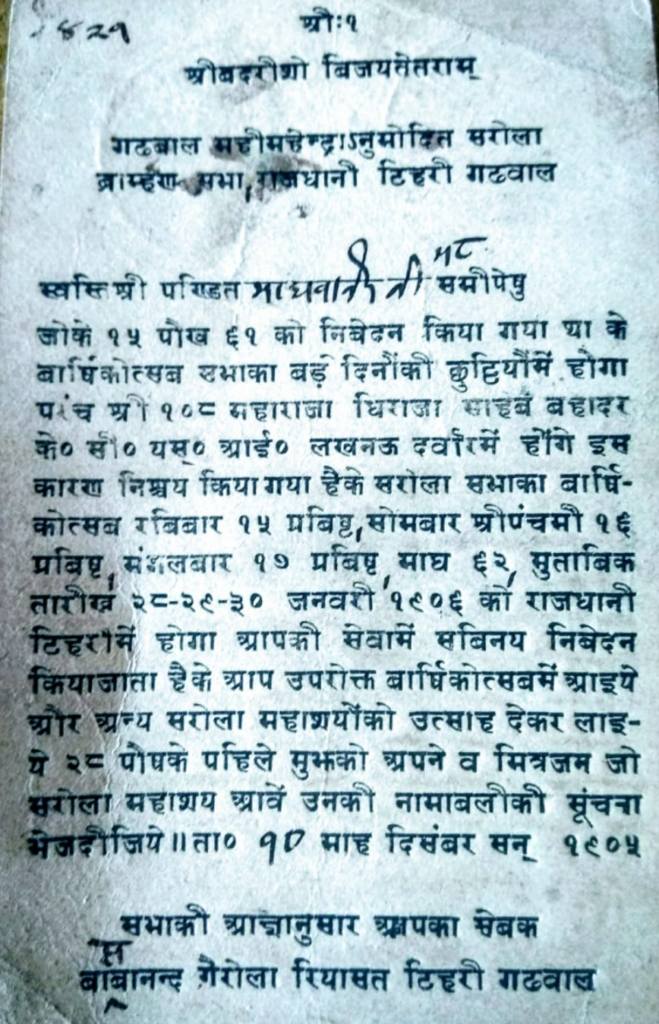 ४२१
श्रौः१
श्रौबदरौशो बिजयतेतराम्
गढबाल महौमहेन्द्राऽनुमोदित सरोला
ब्राम्हण सभा, राजधानौ टिहरौ गढवाल
स्वस्ति श्रौ पण्डित समौपेषु
जोके १५ पोख ६१ को निबेदन किया गया था के
बार्षिकोत्सब सभाका बड़े दिनौंकौ छुट्टियौंमें होगा
पंच श्रौ १०८ महाराजा धिराजा साहब बहादर
के० सौ० यस्० आई० लखनऊ दर्वारमें होंगे इस
कारण निश्चय किया गया हैके सरोला सभाका बार्षि-
कोत्सब रबिबार १५ प्रबिष्ट, सोमबार श्रौपंचमौ १६
प्रबिष्ट, मंगलबार १७ प्रबिष्ट, माघ ६२, मुताबिक
तारौख २८-२९-३० जनवरौ १९०६ को राजधानौ
टिहरौमें होगा आपकौ सेवामें सबिनय निबेदन
कियाजाता हैके आप उपरोक्त बार्षिकोत्सबमें आइये
और अन्य सरोला महाशयौंको उत्साह देकर लाइ-
ये २८ पौषके पहिले मुझको अपने व मित्रजन जो
सरोला महाशय आवें उनकौ नामाबलौकौ सूंचना
भेजदौजिये॥ता० १० माह दिसंबर सन् १९०५
सभाकौ आज्ञानुसार आपका सेबक
स
बाबानन्द गैरोला रियासत टिहरौ गढवाल